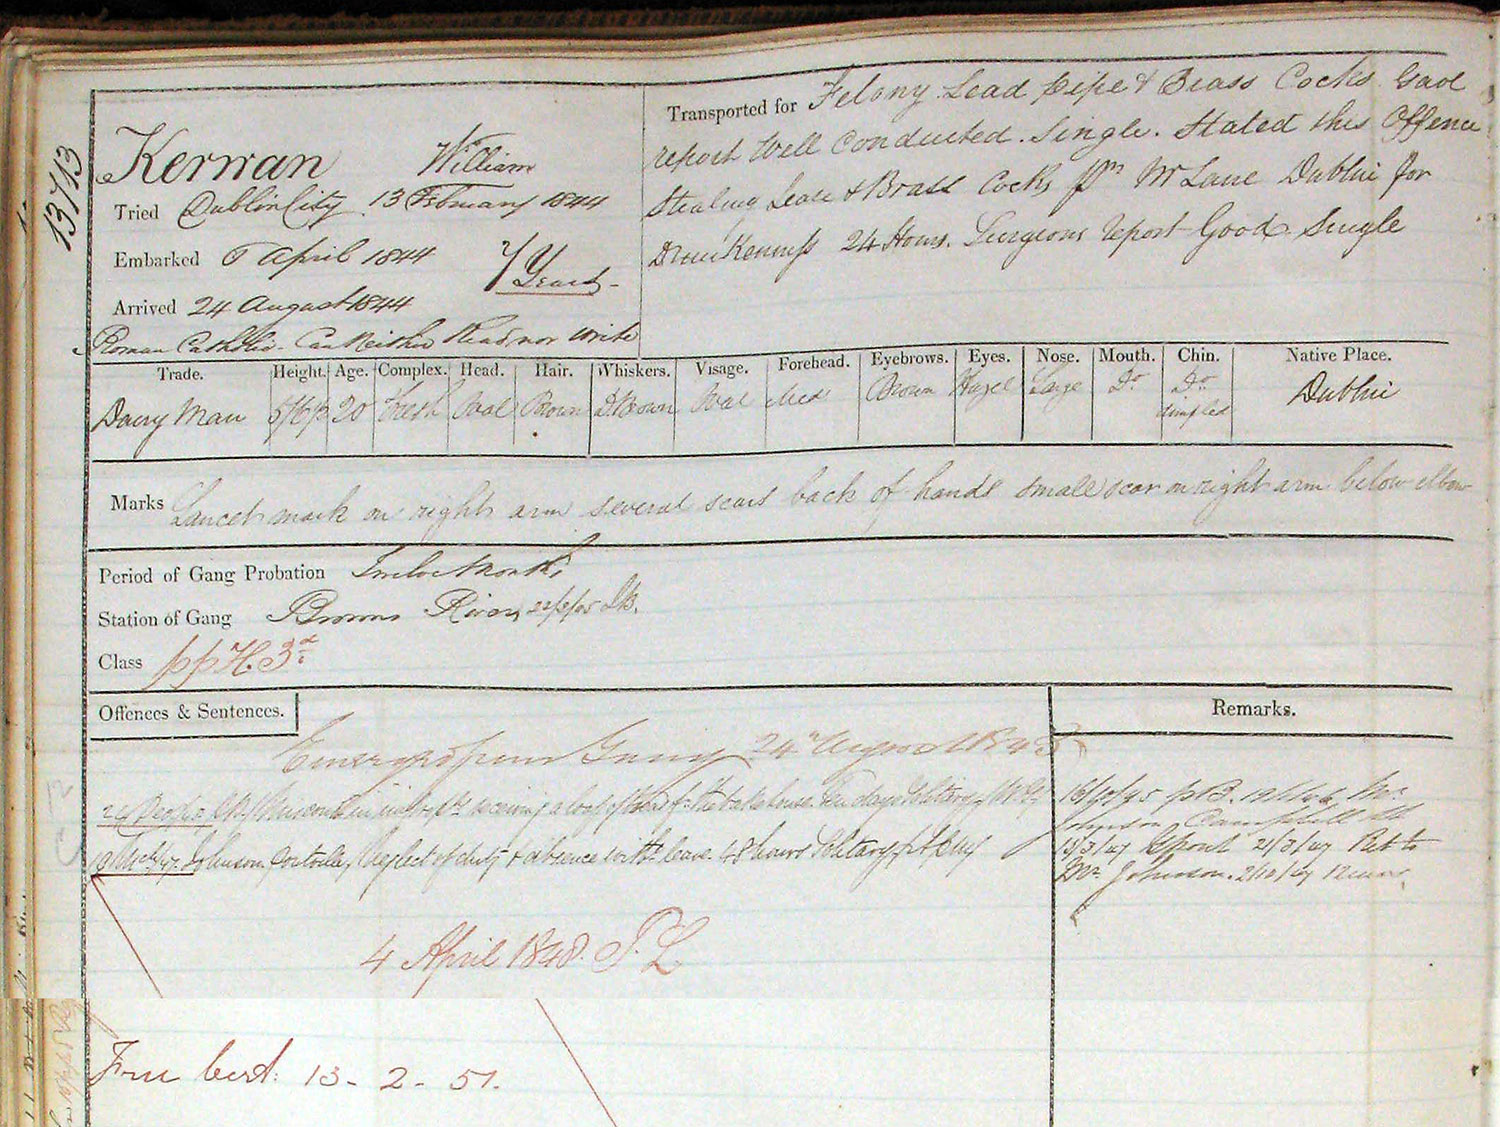 13713
Kerwan William
Tried Dublin City 13 February 1844
Embarked 6 April 1844
7 Years
Arrived 24 August 1844
Roman Catholic. Can Neither Read nor write
Transported for Felony Lead pipe & Brass Cocks Gaol
report Well Conducted. Single. Stated this Offence
Stealing Lead & Brass Cocks fm Mr Lane Dublin for
Drunkenness 24 Hours. Surgeons report Good Single
Trade. Height. Age. Complex. Head. Hair. Whiskers. Visage. Forehead. Eyebrows. Eyes. Nose. Mouth. Chin. Native Place.
Dairy Man 5/6½ 20 Fresh Oval Brown D Brown Oval Med Brown Hazel Large Do Do dimpled Dublin
Marks Lancet mark on right arm several scars back of hands small scar on right arm below elbow
Period of Gang Probation Twelve Months
Station of Gang Browns River
Class pp H. 3d
Offences & Sentences.
Remarks.
Emerged from Gang 24th August 1845
receiving a loaf of bread fm the bakehouse. Ten days Solitary
19 Mch/47. Johnson Neglect of duty & absence witht leave. 48 hours Solitary
4 April 1848. T. L
Free Cert. 13 - 2 - 51.
Johnson Campbell St
18/3/47 21/3/47 Ret to
Mr Johnson. 2/10/47 12 mos.